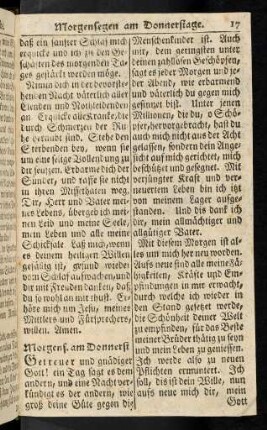 Morgensegen am Donnerstage. 17
daß ein sanfter Schlaf mich
erquicke und ich zu den Ge-
schäften des morgenden Ta-
ges gestärkt werden möge.
Nimm dich in der bevorste-
henden Nacht väterlich aller
Elenden und Nothleidenden
an. Erquicke alle Kranke, die
durch Schmerzen der Ru-
he beraubt sind. Stehe den
Sterbenden bey, wenn sie
um eine selige Vollendung zu
dir seufzen. Erbarme dich der
Sünder, und raffe sie nicht
in ihren Missethaten weg.
Dir, Herr und Vater mei-
nes Lebens, übergeb ich mei-
nen Leib und meine Seele,
mein Leben und alle meine
Schicksale. Laß mich, wenn es
deinem heiligen Willen
gefällig ist, gesund wieder
vom Schlaf aufwachen, und
dir mit Freuden danken, daß
du so wohl an mir thust. Er-
höre mich um Jesu, meines
Mittlers und Fürsprechers,
willen. Amen.
Morgens. am Donnerst
Getreuer und gnädiger
Gott! ein Tag sagt es dem
andern, und eine Nacht ver-
kündigt es der andern, wie
groß deine Güte gegen die
Menschenkinder ist. Auch
mir, dem geringsten unter
deinen zahllosen Geschöpfen,
sagt es jeder Morgen und je-
der Abend, wie erbarmend
und väterlich du gegen mich
gesonnet bist. Unter jenen
Millionen, die du, o Schö-
pfer, hervorgebracht, hast du
auch mich nicht aus der Acht
gelassen, sondern dein Ange-
sicht auf mich gerichtet, mich
beschützt und bewacht. Mit
verjüngter Kraft und ver-
neuertem Leben bin ich itzt
von meinem Lager aufge-
standen. Und dis dank ich
dir, mein allmächtiger und
allgütiger Vater.
Mit diesem Morgen ist al-
les um mich her neu worden.
Aufs neue sind alle meine Fä-
higkeiten, Kräfte und Em-
pfindungen in mir erwacht,
durch welche ich wieder in
den Stand gesetzt werde,
die Schönheit deiner Welt
zu empfinden, für das Beste
meiner Brüder thätig zu seyn
und mein Leben zu geniessen.
Ich werde also zu neuen
Pflichten ermuntert. Ich
soll, dis ist dein Wille, nun
aufs neue mich dir, mein
Gott